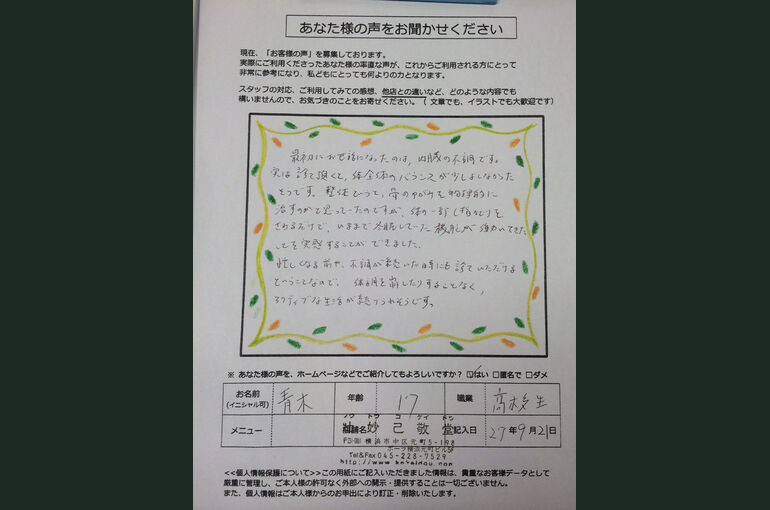 あなた様の声をお聞かせください
現在、「お客様の声」を募集しております。
実際にご利用くださったあなた様の率直な声が、これからご利用される方にとって
非常に参考になり、私どもにとっても何よりの力となります。
スタッフの対応、ご利用してみての感想、他店との違いなど、どのような内容でも
構いませんので、お気づきのことをお寄せください。（ 文章でも、イラストでも大歓迎です）
最初にお世話になったのは、内臓の不調です。
実は診て頂くと、体全体のバランスが少しよくなかった
そうです。整体って、骨のゆがみを物理的に
治すのかと思っていたのですが、体の一部(指など)を
さわるだけで、いままで冬眠していた機能が動いてきた
ことを実感することができました。
忙しくなる前や、不調が続いた時にも診ていただける
ということなので、体調を崩したりすることなく、
アクティブな生活が続けられそうです。
※ あなた様の声を、ホームページなどでご紹介してもよろしいですか？ ☑はい □匿名で □ダメ
お名前 青木 年齢 17 職業 高校生
(イニシャル可)
メニュー 店舗名 妙己敬堂 記入日 27年9月21日
横浜市中区元町5-198
ポーラ横浜元町ビル5F
Tel&Fax 045-228-7529
<<個人情報保護について>>この用紙にご記入いただきました情報は、貴重なお客様データとして
厳重に管理し、ご本人様の許可なく外部への開示・提供することは一切ございません。
また、個人情報はご本人様からのお申出により訂正・削除いたします。